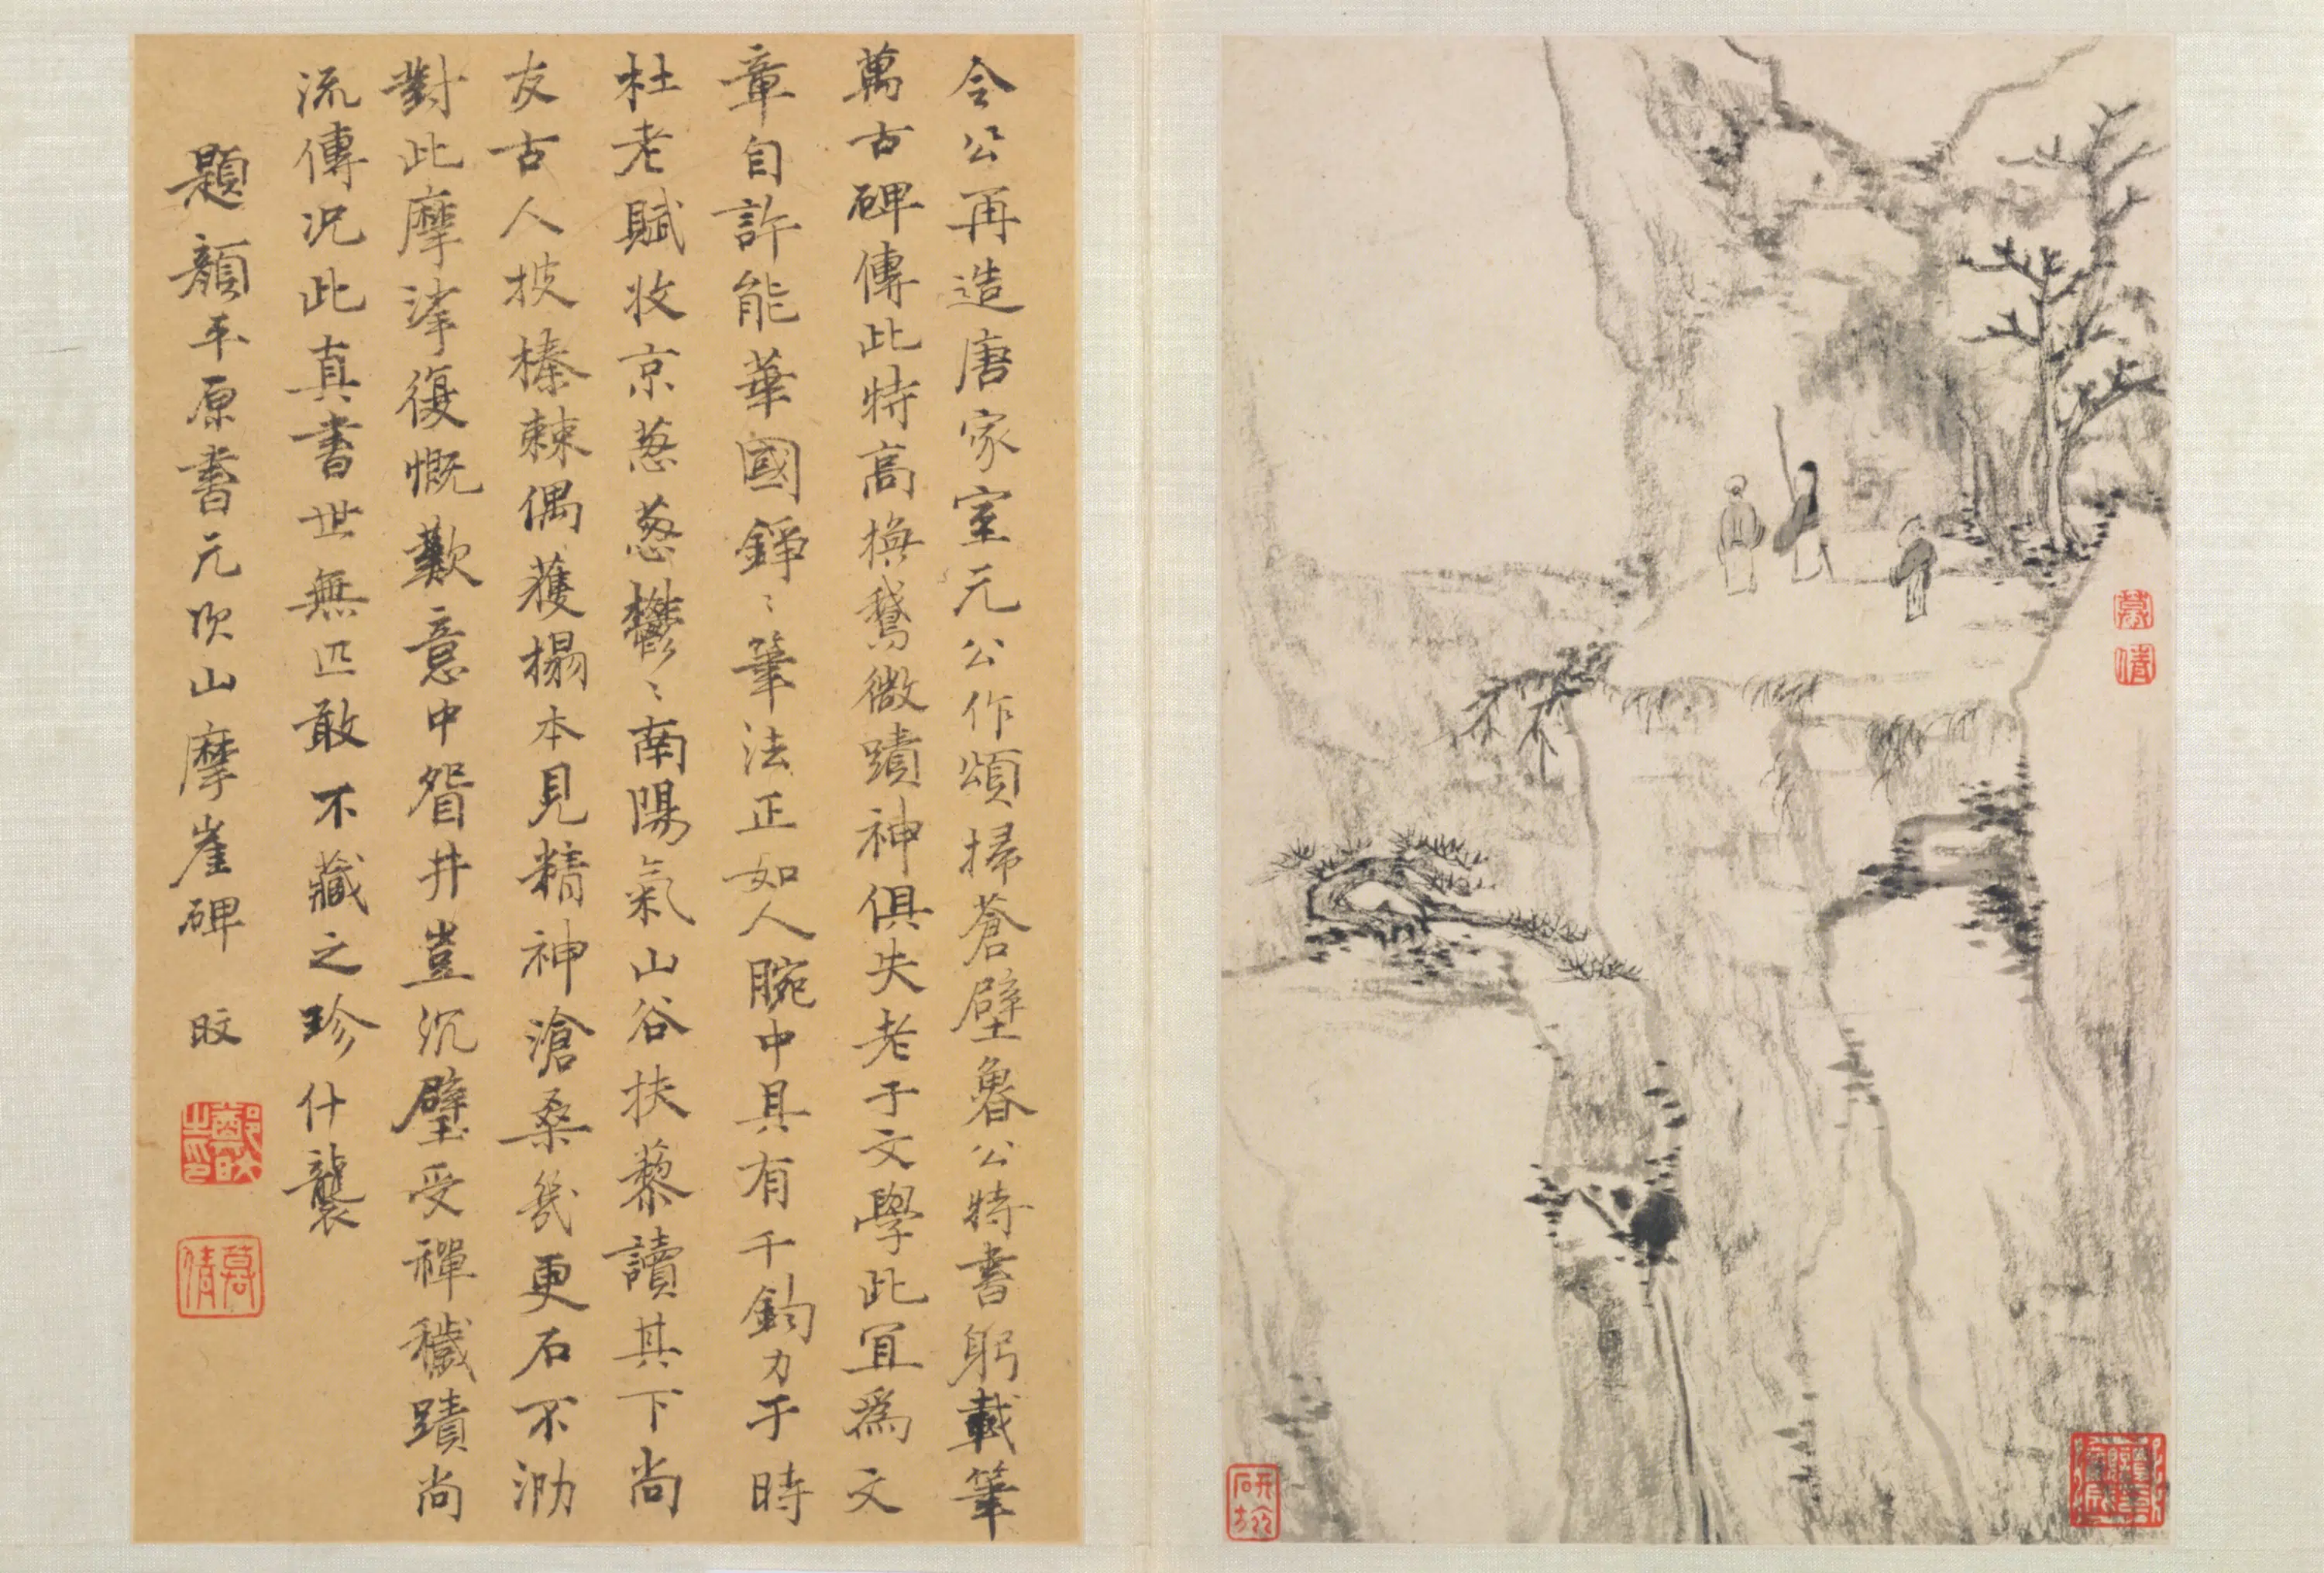 令公再造唐家室元公作頌掃蒼壁魯公特書躬載筆
萬古碑傳此特高橅鵝微蹟神俱失老于文學此宜爲文
章自許能華國錚〻筆法正如人腕中具有千鈞力于時
杜老賦收京葱葱鬱〻南陽氣山谷扶藜讀其下尚
友古人披榛棘偶獲搨本見精神滄桑幾更石不泐
對此摩挲復慨歎意中眢井豈沉璧受禪穢蹟尚
流傳况此真書世無匹敢不藏之珍什襲
題顏平原書元次山摩崖碑 旼
鄭旼之印
慕倩
慕倩